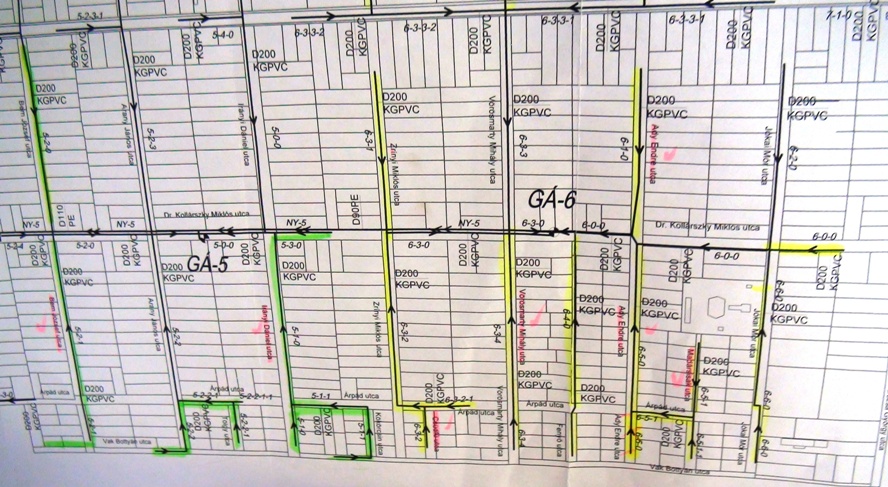 5-2-3-1
D200
KGPVC
D200
KGPVC
5-4-0
D200
KGPVC
6-3-3-2
D200
KGPVC
6-3-3-2
D200
KGPVC
6-3-3-1
D200
KGPVC
6-3-3-1
D200
KGPVC
7-1-0
D200
KGPVC
D200
KGPVC
Bem József utca
5-2-0
Arany János utca
5-2-3
Irányi Dániel utca
5-0-0
D200
KGPVC
6-3-1
Zrínyi Miklós utca
Vörösmarty Mihály utca
D200
KGPVC
6-3-3
D200
KGPVC
6-1-0
Ady Endre utca
D200
KGPVC
Jókai Mór utca
6-2-0
GÁ-6
D110
PE
D90PE
Dr. Kollárszky Miklós utca
NY-5
NY-5
NY-5
NY-5
6-3-0
6-0-0
Dr. Kollárszky Miklós utca
6-0-0
5-2-4
D200
KGPVC
5-2-0
D200
KGPVC
5-0-0
D200
KGPVC
5-3-0
6-3-0
D200
KGPVC
D200
KGPVC
6-0-0
D200
KGPVC
GÁ-5
D200
KGPVC
D200
KGPVC
D200
KGPVC
D200
KGPVC
D200
KGPVC
D200
KGPVC
D200
KGPVC
D200
KGPVC
Bem József utca
5-2-1
Arany János utca
5-2-2
Irányi Dániel utca
5-1-0
Zrínyi Miklós utca
6-3-2
6-3-4
Vörösmarty Mihály utca
6-4-0
Ady Endre utca
6-5-0
6-5-1
Jókai Mór utca
6-6-0
D200
KGPVC
D200
KGPVC
Árpád utca
D200
KGPVC
Árpád utca
5-2-2-1
5-2-2-1-1
5-1-1
Árpád utca
D200
KGPVC
6-3-2-1
Árpád utca
D200
KGPVC
Árpád utca
6-5-1
6-6-0
D200
KGPVC
D200
KGPVC
D200
KGPVC
5-1-0
6-3-2
6-3-4
Ady Endre utca
6-5-0
D200
KGPVC
Jókai Mór utca
6-6-0
Vak Bottyán utca
Vak Bottyán utca